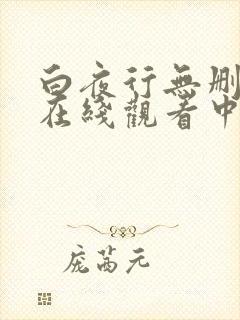 白夜行無删
在綫觀看中
庞茜元